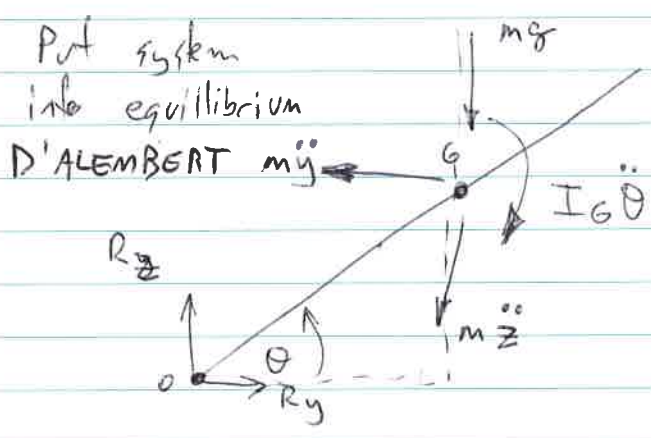 Put system
into equillibrium
D'ALEMBERT mÿ
mg
G
I_G θ̈
R_z
m z̈
θ
O
R_y